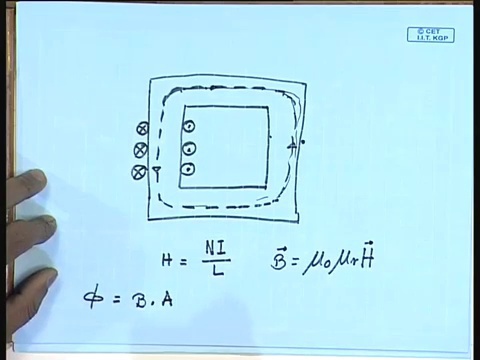 © CET
I.I.T. KGP
H = NI/L    B⃗ = μ₀μᵣH⃗
φ = B.A